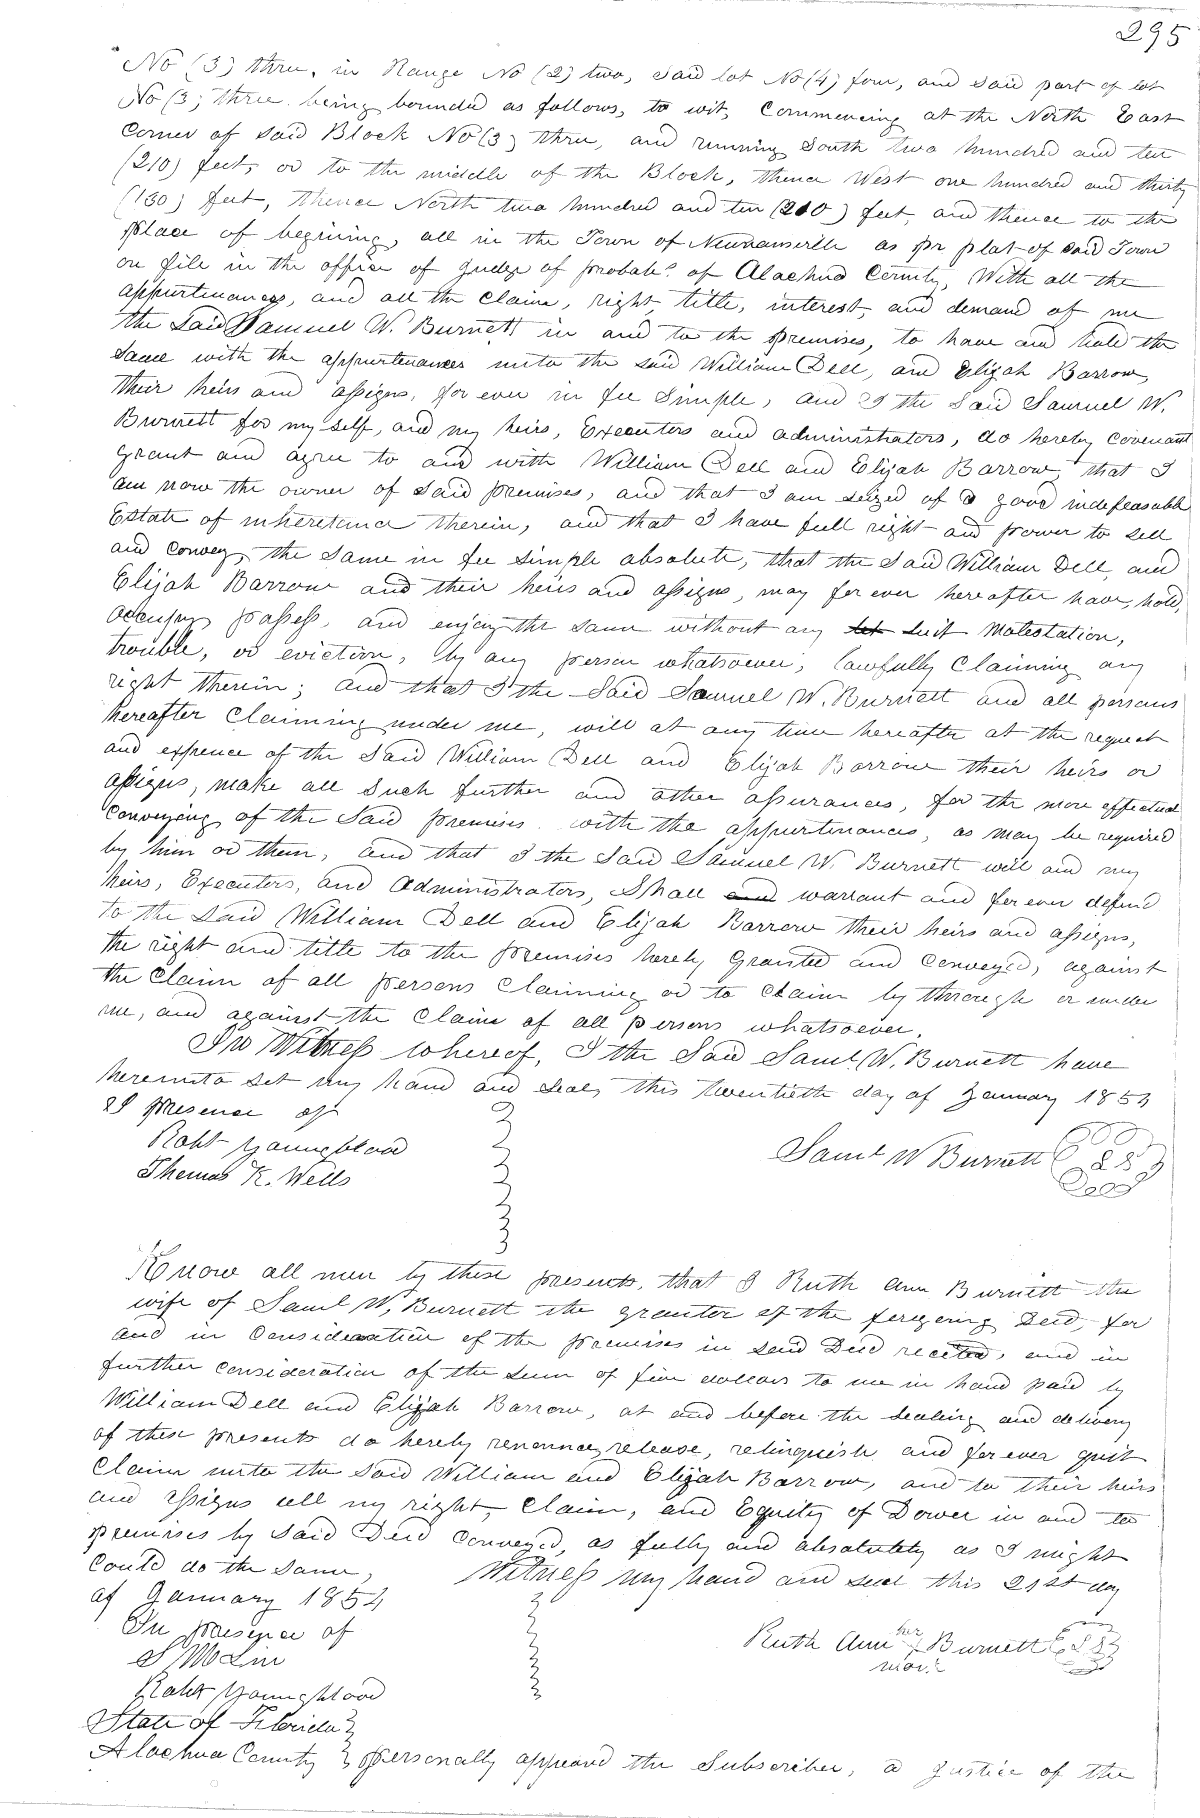 295
No (3) three, in Range No (2) two, said lot No (4) four, and said part of lot
No (3) three being bounded as follows, to wit, Commencing at the North East
Corner of said Block No (3) three, and running South two hundred and ten
(210) feet, or to the middle of the Block, thence West one hundred and thirty
(130) feet, thence North two hundred and ten (210) feet, and thence to the
place of begining, all in the Town of Newnansville as pr plat of said Town
on file in the office of Judge of probate of Alachua County, With all the
appurtenances, and all the Claim, right, title, interest, and demand of me
the Said Samuel W. Burnett in and to the premises, to have and hold the
same with the appurtenances unto the said William Dell, and Elijah Barrow,
their heirs and assigns, for ever in fee Simple, and I the Said Samuel W.
Burnett for my self, and my heirs, Executors and administrators, do hereby Covenant
grant and agree to and with William Dell and Elijah Barrow, that I
am now the owner of Said premises, and that I am seized of a good indefeasable
Estate of inheretance therein, and that I have full right and power to sell
and Convey, the same in fee simple absolute, that the Said William Dell, and
Elijah Barrow and their heirs and assigns, may for ever hereafter have, hold,
occupy possess, and enjoy the same without any let suit molestation,
trouble, or eviction, by any person whatsoever, lawfully Claiming any
right therein; and that I the Said Samuel W. Burnett and all persons
hereafter Claiming under me, will at any time hereafter at the request
and expence of the Said William Dell and Elijah Barrow their heirs or
assigns, make all Such further and other assurances, for the more effectual
Conveying of the Said premises with the appurtinances, as may be required
by him or them, and that I the Said Samuel W. Burnett will and my
heirs, Executors, and Administrators, Shall and warrant and for ever defend
to the Said William Dell and Elijah Barrow their heirs and assigns,
the right and title to the premises hereby Granted and Conveyed, against
the Claim of all persons Claiming or to Claim by through or under
me, and against the Claim of all persons whatsoever.
In Witness whereof, I the Said Saml. W. Burnett have
hereunto set my hand and seal, this twentieth day of January 1854
presence of
Robt Youngblood
Thomas K. Wells
Saml W Burnett
Know all men by these presents, that I Ruth Ann Burnett the
wife of Saml W. Burnett the grantor of the foregoing Deed, for
and in Consideration of the premises in said Deed recited, and in
further consideration of the sum of five dollars to me in hand paid by
William Dell and Elijah Barrow, at and before the sealing and delivery
of these presents do hereby renounce, release, relinquish and for ever quit
Claim unto the Said William and Elijah Barrow, and to their heirs
and assigns all my right, Claim, and Equity of Dower in and to
premises by Said Deed Conveyed, as fully and absolutely as I might
Could do the same, Witness my hand and seal this 21st day
of January 1854
In presence of
S McLin
Robt Youngblood
Ruth Ann her Burnett
State of Florida
Alachua County personally appeared the Subscriber, a Justice of the